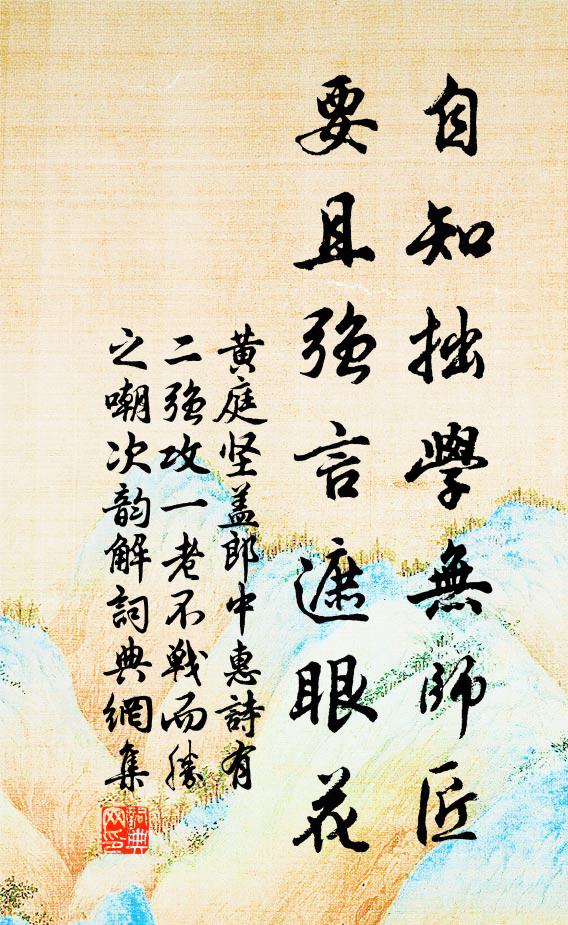 自知拙學無師匠
要且強言遮眼花
黄庭坚盖郎中惠詩有
二強攻一老不戦而勝
之嘲次韵解詞典網集